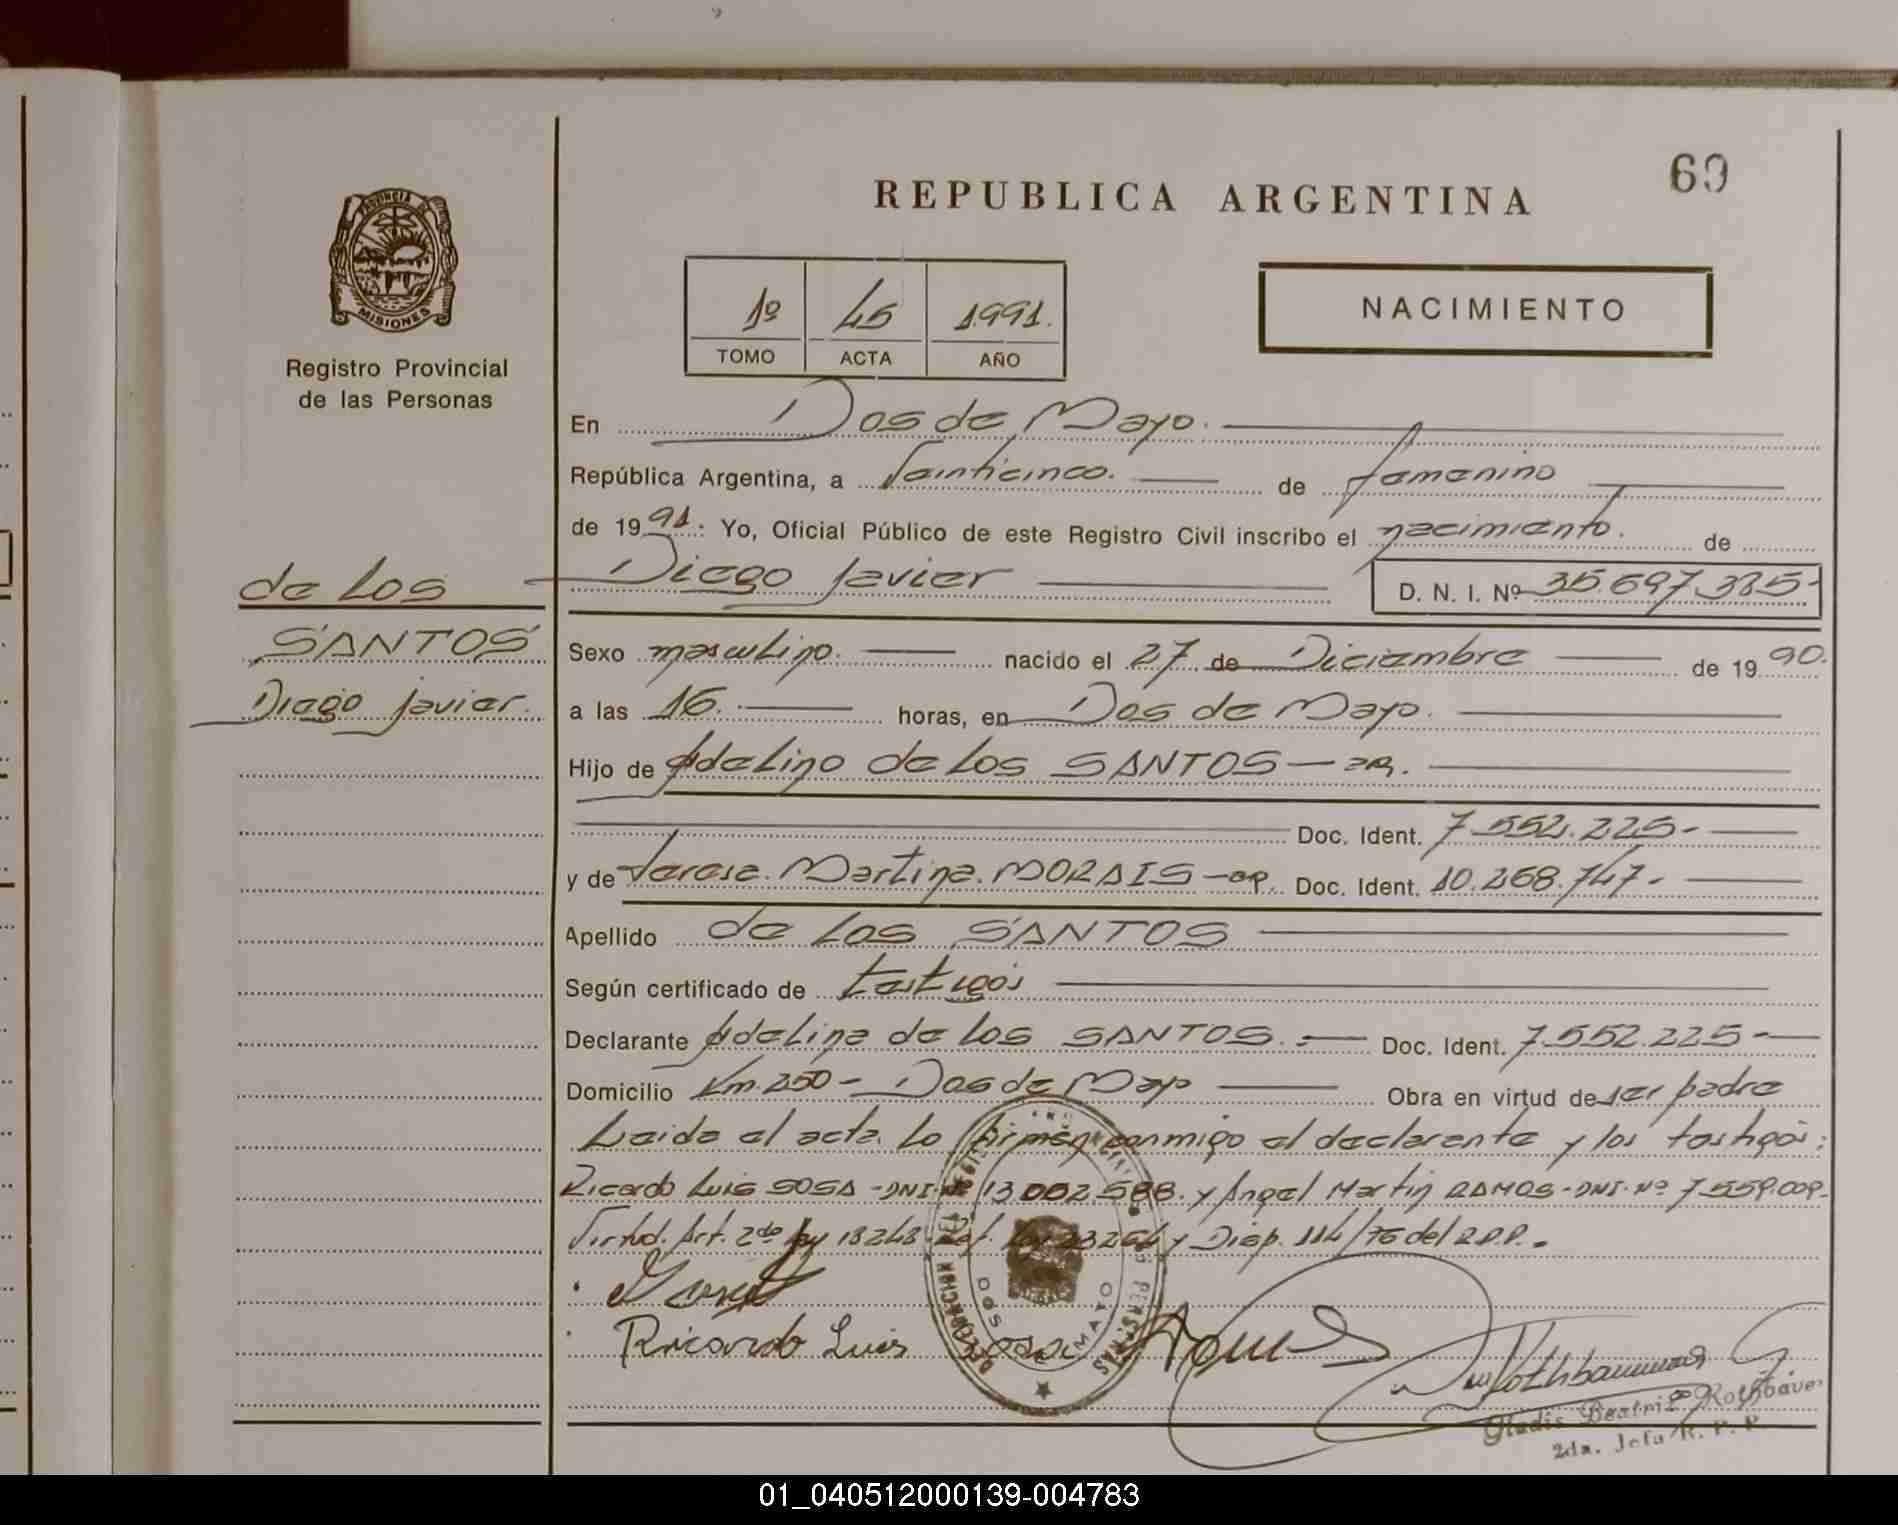 69
REPUBLICA ARGENTINA
PROVINCIA DE
MISIONES
Registro Provincial
de las Personas
1º 45 1991.
TOMO ACTA AÑO
NACIMIENTO
En Dos de Mayo.
República Argentina, a Veinticinco. de
de 1991: Yo, Oficial Público de este Registro Civil inscribo el nacimiento. de
Diego Javier D. N. I. Nº 35.697.385-
de Los
SANTOS
Diego Javier.
Sexo masculino. nacido el 27 de Diciembre de 1990.
a las 16. horas, en Dos de Mayo.
Hijo de Adelino de Los SANTOS
Doc. Ident. 7.552.225-
y de Teresa Martina MORAIS Doc. Ident. 10.268.747-
Apellido de Los SANTOS
Según certificado de testigos
Declarante Adelino de Los SANTOS. Doc. Ident. 7.552.225-
Domicilio Km. 250 - Dos de Mayo Obra en virtud de ser padre
Leida el acta. Lo firman conmigo el declarante y los testigos:
Ricardo Luis SOSA - DNI Nº 13.002.588. y Angel Martin RAMOS - DNI. Nº 7.559.009-
Virtud. Art. 2do Ley 18248 Ref. Ley 23264 y Disp. 114/76 del R.P.P.
Ricardo Luis Sosa Ramos
DOS DE MAYO
Gladis Beatriz Rothbauer
2da. Jefa R. P. P.
01_040512000139-004783